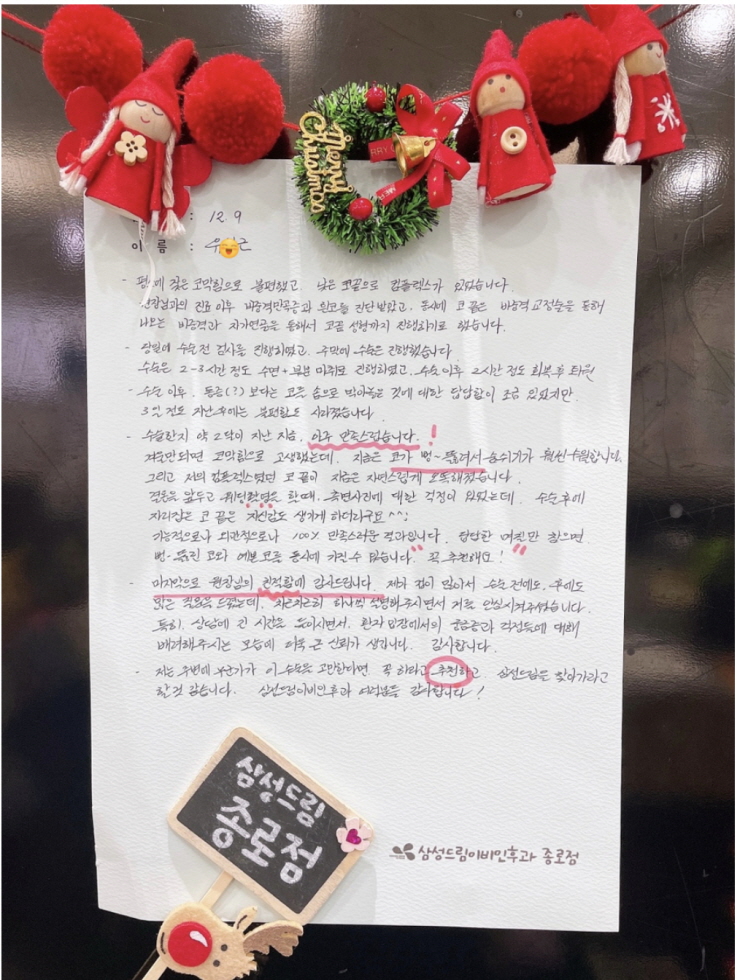 Merry Christmas
: 12. 9
이 름 :
- 평소에 잦은 코막힘으로 불편했고, 낮은 코끝으로 컴플렉스가 있었습니다.
원장님과의 진료 이후 비중격만곡증과 휜코를 진단받았고, 동시에 코 끝은 비중격 교정술을 통해
나오는 비중격과 자가연골을 통해서 코끝 성형까지 진행하기로 했습니다.
- 당일에 수술 전 검사를 진행하였고, 주말에 수술을 진행했습니다
수술은 2-3시간 정도 수면+부분 마취로 진행하였고, 수술 이후 2시간 정도 회복 후 퇴원
- 수술 이후, 통증(?) 보다는 코를 솜으로 막아놓은 것에 대한 답답함이 조금 있었지만,
3일 정도 지난 후에는 불편함도 사라졌습니다.
- 수술한지 약 2달이 지난 지금, 아주 만족스럽습니다. !
겨울만되면 코막힘으로 고생했는데, 지금은 코가 뻥~ 뚫려서 숨쉬기가 훨씬 수월합니다.
그리고 저의 컴플렉스였던 코 끝이 지금은 자연스럽게 오똑해졌습니다.
결혼을 앞두고 웨딩촬영을 할때, 측면사진에 대한 걱정이 있었는데, 수술후에
자리잡은 코 끝은 자신감도 생기게 하더라구요^^;
기능적으로나 외관적으로나 100% 만족스러운 결과입니다. 답답한 며칠만 참으면,
뻥~ 뚫린 코와 예쁜 코를 동시에 가질 수 있습니다. 꼭 추천해요!
- 마지막으로 원장님의 친절함에 감사드립니다. 제가 겁이 많아서 수술 전에도, 후에도
많은 질문을 드렸는데, 차근차근히 하나씩 설명해주시면서 저를 안심시켜주셨습니다.
특히, 상담에 긴 시간을 쏟으시면서, 환자 입장에서의 궁금증과 걱정들에 대해
배려해주시는 모습에 더욱 큰 신뢰가 생깁니다. 감사합니다.
- 저는 주변에 누군가가 이 수술을 고민한다면 꼭 하라고 추천하고 삼성드림을 찾아가라고
할 것 같습니다. 삼성드림이비인후과 여러분들 감사합니다!
삼성드림
종로점
삼성드림이비인후과 종로점